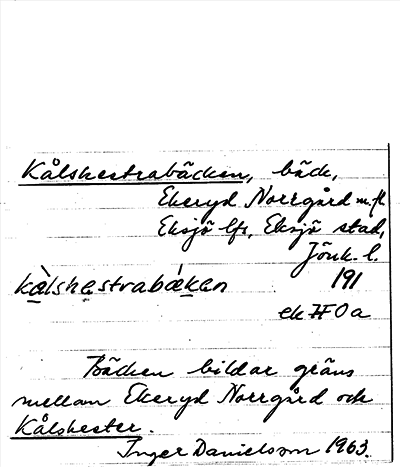 Kålshestrabäcken, bäck,
Ekeryd Norrgård m. fl
Eksjö lfs, Eksjö stad,
Jönk. l.
kålshestrabäken 191
ek 7F0a
Bäcken bildar gräns
mellan Ekeryd Norrgård och
Kålshester.
Inger Danielsson 1963.